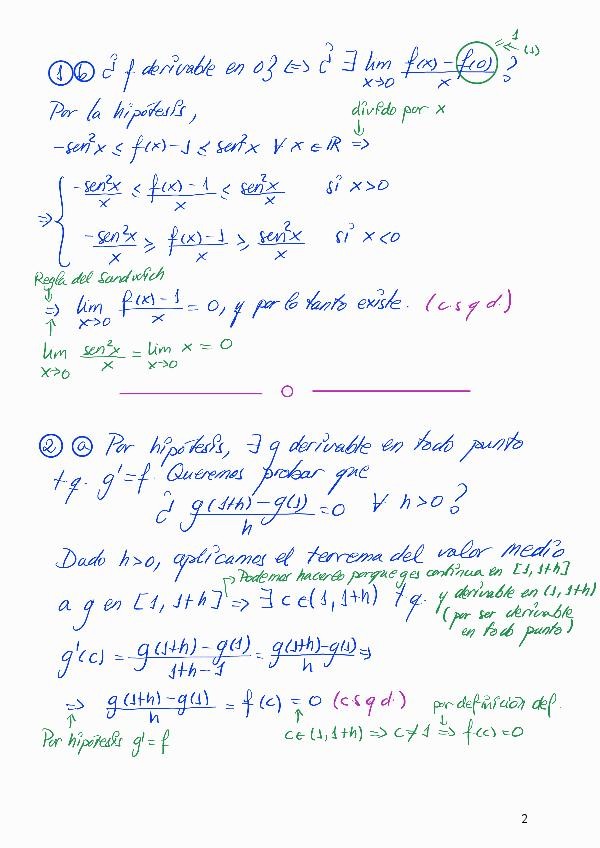 = 1
← (1)
1 b ¿ f derivable en 0? ⇔ ¿ ∃ lim x→0 (f(x) − f(0))/x ?
Por la hipótesis,
divido por x
−sen²x ≤ f(x) − 1 ≤ sen²x ∀ x ∈ ℝ ⇒
⇒ { −sen²x/x ≤ (f(x) − 1)/x ≤ sen²x/x si x>0
−sen²x/x ≥ (f(x) − 1)/x ≥ sen²x/x si x<0
Regla del Sandwich
⇒ lim x→0 (f(x) − 1)/x = 0, y por lo tanto existe. (c.s.q.d.)
lim x→0 sen²x/x = lim x→0 x = 0
2 a Por hipótesis, ∃ g derivable en todo punto
t.q. g' = f. Queremos probar que
¿ (g(1+h) − g(1))/h = 0 ∀ h>0 ?
Dado h>0, aplicamos el teorema del valor medio
Podemos hacerlo porque g es continua en [1, 1+h]
a g en [1, 1+h] ⇒ ∃ c ∈ (1, 1+h) t.q.
y derivable en (1, 1+h)
(por ser derivable
en todo punto)
g'(c) = (g(1+h) − g(1))/(1+h−1) = (g(1+h) − g(1))/h ⇒
⇒ (g(1+h) − g(1))/h = f(c) = 0 (c.s.q.d.)
por definición de f.
Por hipótesis g' = f
c ∈ (1, 1+h) ⇒ c ≠ 1 ⇒ f(c) = 0
2